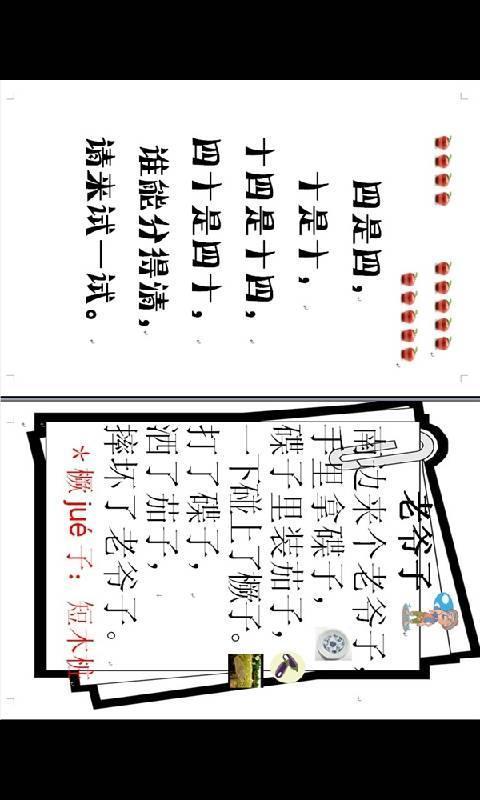 四是四，
十是十，
十四是十四，
四十是四十，
谁能分得清，
请来试一试。
老爷子
南边来个老爷子，
手里拿碟子，
碟子里装茄子，
一下碰上了橛子。
打了碟子，
洒了茄子，
摔坏了老爷子。
＊橛jué子：短木桩